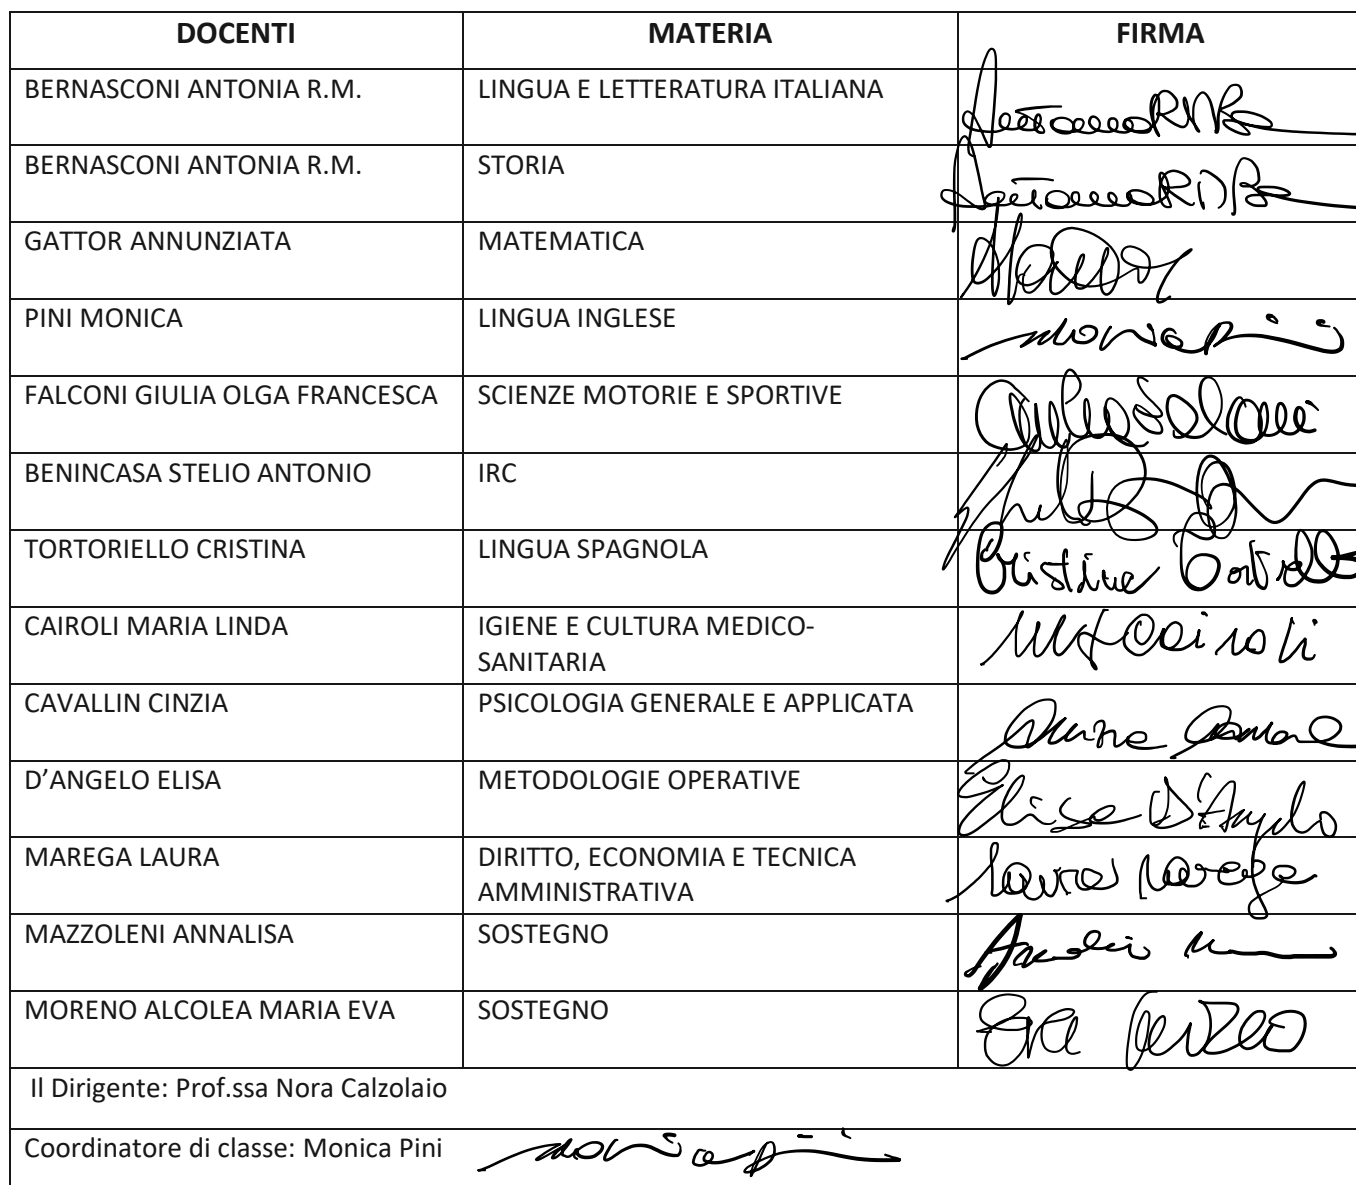 DOCENTI MATERIA FIRMA
BERNASCONI ANTONIA R.M. LINGUA E LETTERATURA ITALIANA AntoniaRMBe
BERNASCONI ANTONIA R.M. STORIA AntoniaRMBe
GATTOR ANNUNZIATA MATEMATICA
PINI MONICA LINGUA INGLESE Monica Pini
FALCONI GIULIA OLGA FRANCESCA SCIENZE MOTORIE E SPORTIVE Giulia Falconi
BENINCASA STELIO ANTONIO IRC
TORTORIELLO CRISTINA LINGUA SPAGNOLA Cristina
CAIROLI MARIA LINDA IGIENE E CULTURA MEDICO-
SANITARIA MLCairoli
CAVALLIN CINZIA PSICOLOGIA GENERALE E APPLICATA
D’ANGELO ELISA METODOLOGIE OPERATIVE Elisa D'Angelo
MAREGA LAURA DIRITTO, ECONOMIA E TECNICA
AMMINISTRATIVA Laura Marega
MAZZOLENI ANNALISA SOSTEGNO
MORENO ALCOLEA MARIA EVA SOSTEGNO Eva
Il Dirigente: Prof.ssa Nora Calzolaio
Coordinatore di classe: Monica Pini Monica Pini